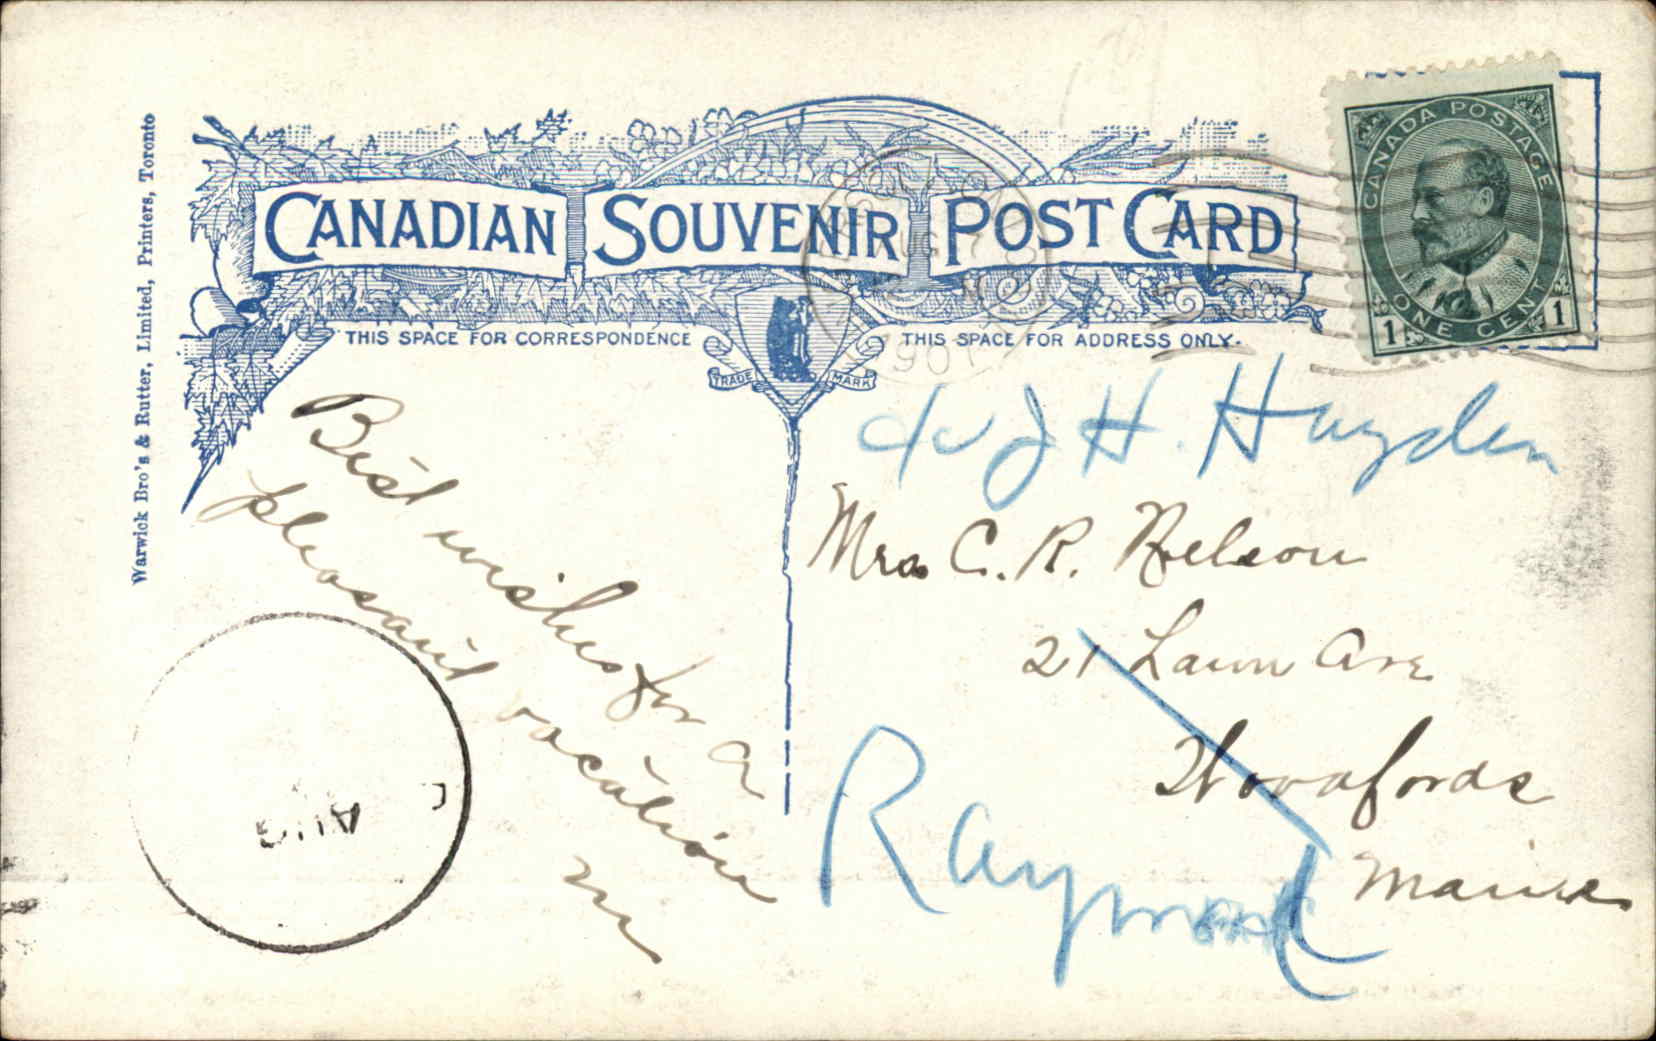 CANADIAN SOUVENIR POST CARD
THIS SPACE FOR CORRESPONDENCE
THIS SPACE FOR ADDRESS ONLY.
TRADE MARK
Warwick Bro's & Rutter, Limited, Printers, Toronto
CANADA POSTAGE
ONE CENT
1 1
AUG 7
1907
Best wishes for a
pleasant vacation
M
J H. Hayden
Mrs C. R. Nelson
21 Lawn Ave
Woodfords
Maine
Raymond
AUG